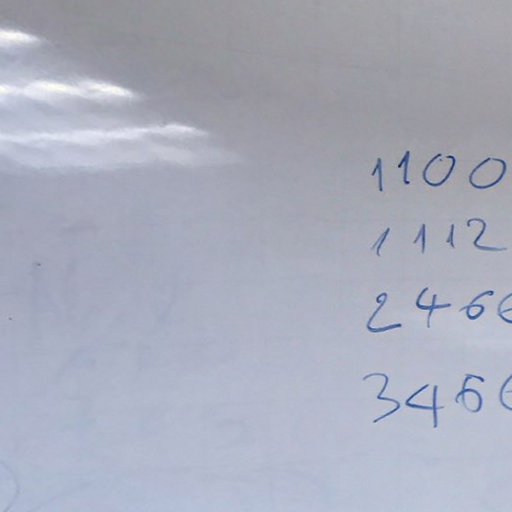 1100
1112
2466
3456